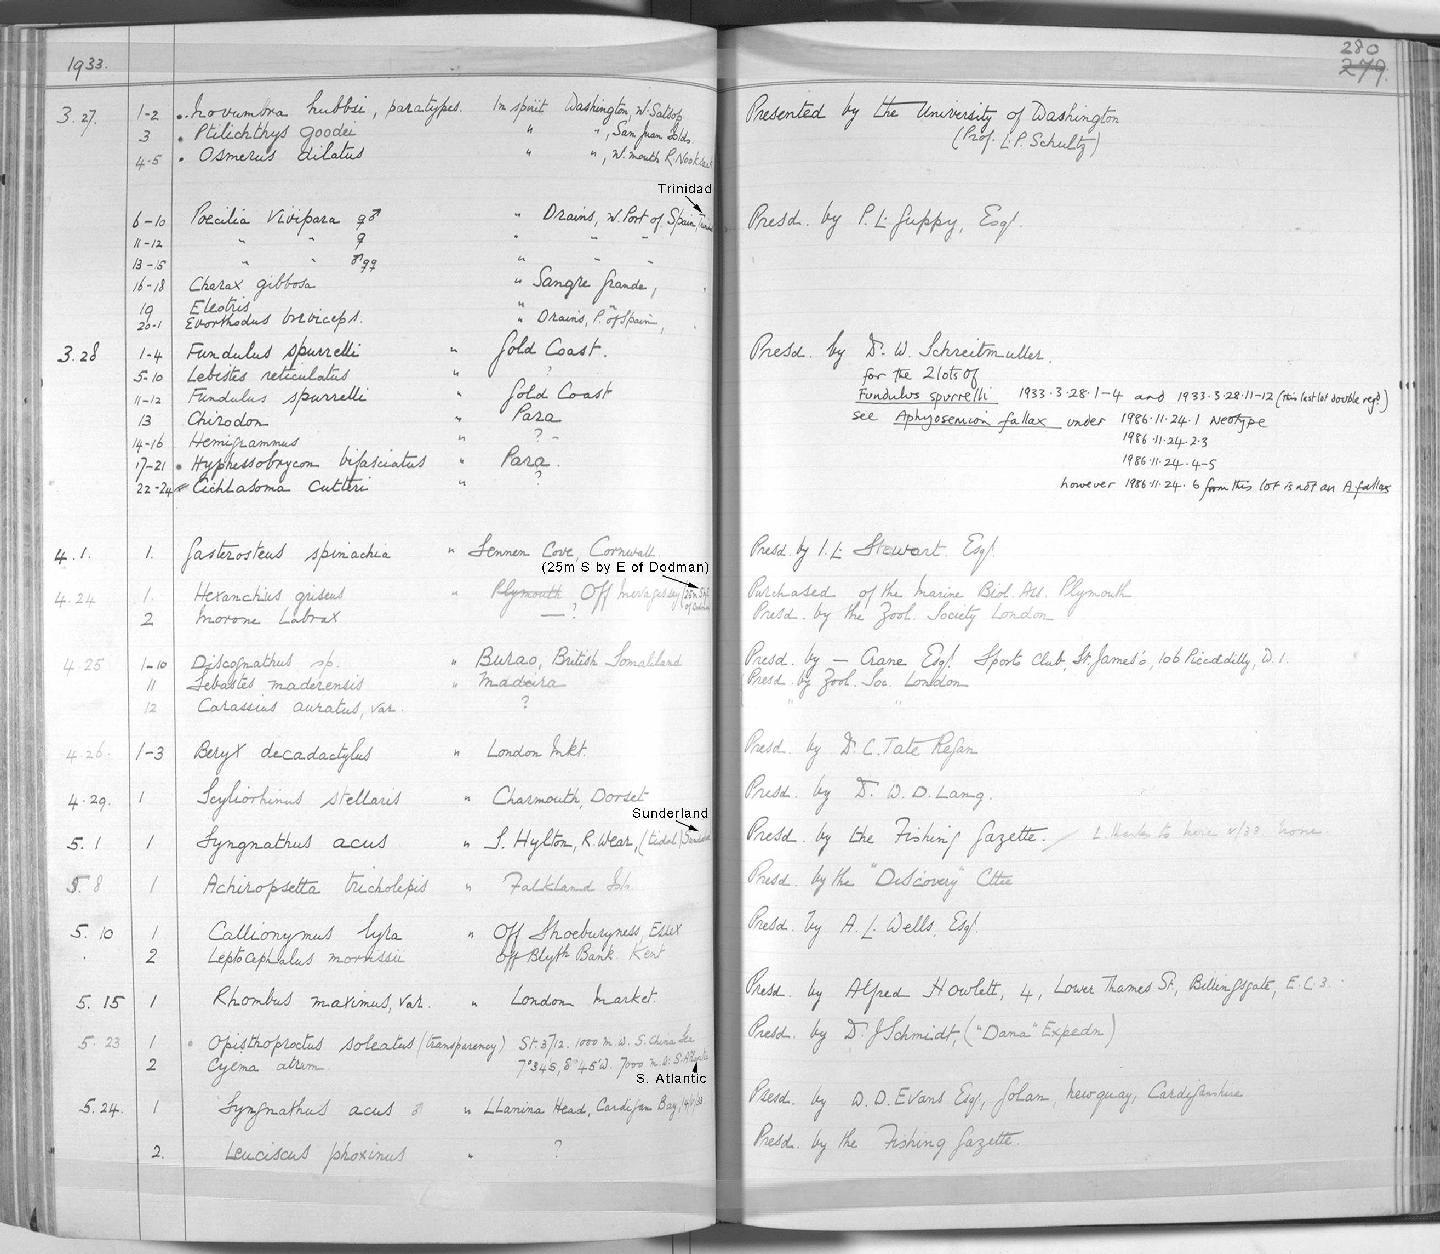 1933.
280
279.
3.27. 1-2 Novumbra hubbsi, paratypes. In spirit Washington, W. Satsop Presented by the University of Washington
3 Ptilichthys goodei " ", San Juan Islds. (Prof. L.P. Schultz)
4-5 Osmerus dilatus " ", N. mouth R. Nooksack
Trinidad
6-10 Poecilia vivipara ♀♂ " Drains, W. Port of Spain, Presd. by P.L. Guppy, Esqr.
11-12 " " ♀ " " "
13-15 " " ♂♀♀ " " "
16-18 Charax gibbosa " Sangre Grande, "
19 Eleotris " "
20-1 Evorthodus breviceps. " Drains, P. of Spain, "
3.28 1-4 Fundulus spurrelli " Gold Coast. Presd. by Dr. W. Schreitmuller.
5-10 Lebistes reticulatus " ? for the 2 lots of
11-12 Fundulus spurrelli " Gold Coast Fundulus spurrelli 1933.3.28.1-4 and 1933.3.28.11-12 (this last lot double regd.)
13 Chirodon " Para see Aphyosemion fallax under 1986.11.24.1 Neotype
14-16 Hemigrammus " ? - 1986.11.24.2-3
17-21 Hyphessobrycon bifasciatus " Para. 1986.11.24.4-5
22-24 Cichlasoma cutteri " ? however 1986.11.24.6 from this lot is not an A. fallax
4.1. 1. Gasterosteus spinachia " Sennen Cove, Cornwall. Presd. by I.L. Stewart Esqr.
(25m S by E of Dodman)
4.24 1. Hexanchus griseus " Plymouth Off Mevagissey (25m S by E of Dodman) Purchased of the Marine Biol. Ass. Plymouth
2 Morone Labrax — ? Presd. by the Zool. Society London
4.25 1-10 Discognathus sp. " Burao, British Somaliland Presd. by — Crane Esqr. Sports Club, St. James's, 106 Piccadilly, W.1.
11 Sebastes maderensis " Madeira Presd. by Zool. Soc. London
12 Carassius auratus, var. ? " "
4.26. 1-3 Beryx decadactylus " London Mkt. Presd. by Dr. C. Tate Regan
4.29. 1 Scyliorhinus stellaris " Charmouth, Dorset Presd. by Dr. W.D. Lang.
Sunderland
5.1 1 Syngnathus acus " S. Hylton, R. Wear, (tidal) Sunderland Presd. by the Fishing Gazette.
5.8 1 Achiropsetta tricholepis " Falkland Is. Presd. by the "Discovery" Cttee
5.10 1 Callionymus lyra " Off Shoeburyness, Essex Presd. by A.L. Wells, Esqr.
2 Leptocephalus morrissii Off Blyth Bank. Kent
5.15 1 Rhombus maximus, var. " London Market. Presd. by Alfred Howlett, 4, Lower Thames St., Billingsgate, E.C.3.
5.23 1 Opisthoproctus soleatus (transparency) St. 3712. 1000 m.w. S. China Sea Presd. by Dr. J Schmidt, ("Dana" Expedn)
2 Cyema atrum 7°34'S, 8°45'W. 7000 m.w. S. Atlantic
S. Atlantic
5.24. 1 Syngnathus acus ♂ " Llanina Head, Cardigan Bay, Presd. by D.D. Evans Esqr., Golan, Newquay, Cardiganshire
2. Leuciscus phoxinus " ? Presd. by the Fishing Gazette.